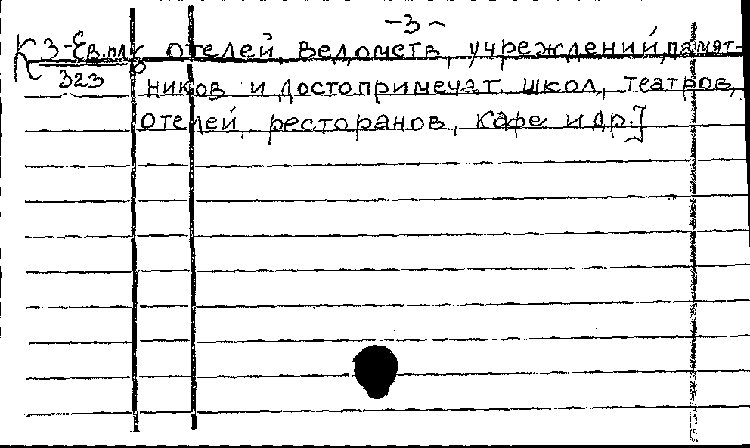 -3-
К 3-Ев.пл. отелей, ведомств, учреждений, памят-
323 ников и достопримечат. школ, театров,
отелей, ресторанов, кафе и др.]